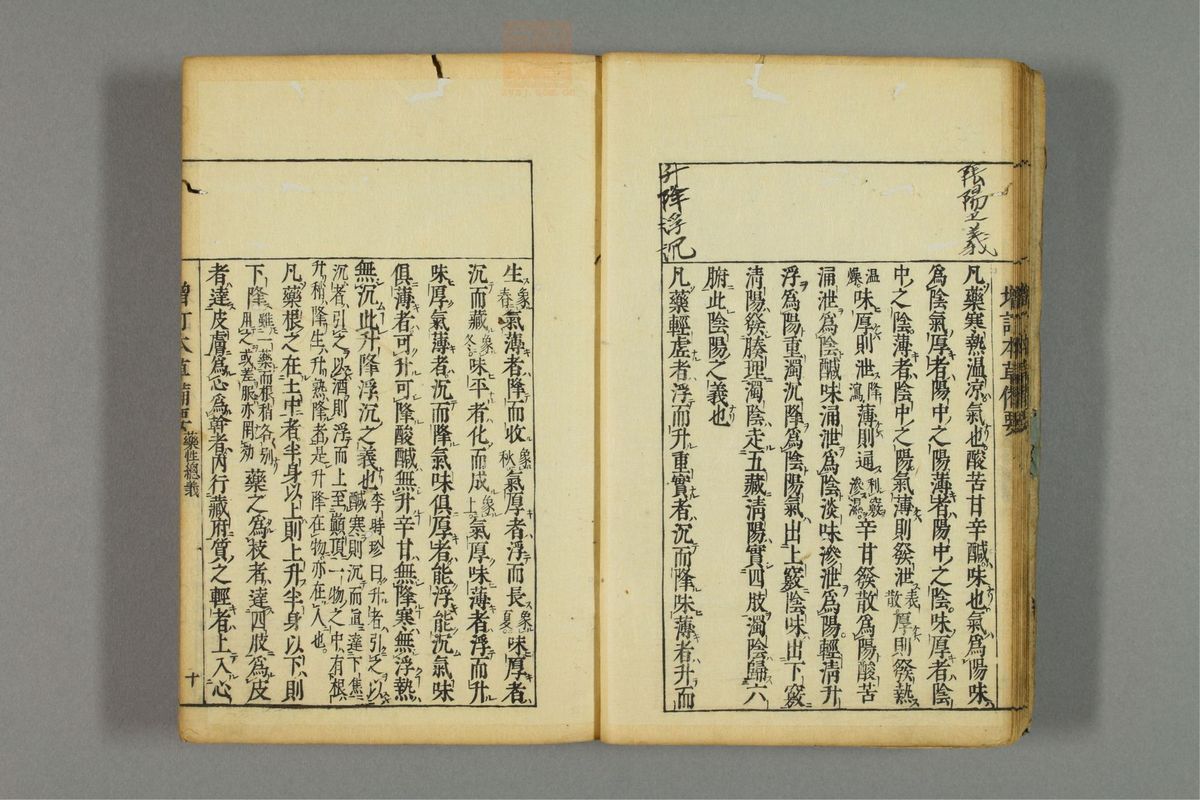 陰陽之義
升降浮沉
增訂本草備要
凡藥寒熱溫凉氣也酸苦甘辛鹹味也氣爲陽味
爲陰氣厚者陽中之陽薄者陽中之陰味厚者陰
中之陰薄者陰中之陽氣薄則發泄表散厚則發熱
溫燥味厚則泄降瀉薄則通利竅滲濕辛甘發散爲陽酸苦
涌泄爲陰鹹味涌泄爲陰淡味滲泄爲陽輕清升
浮爲陽重濁沉降爲陰陽氣出上竅陰味出下竅
清陽發腠理濁陰走五藏清陽實四肢濁陰歸六
腑此陰陽之義也
凡藥輕虛者浮而升重實者沉而降味薄者升而
生象春氣薄者降而收象秋氣厚者浮而長象夏味厚者
沉而藏象冬味平者化而成象土氣厚味薄者浮而升
味厚氣薄者沉而降氣味俱厚者能浮能沉氣味
俱薄者可升可降酸鹹無升辛甘無降寒無浮熱
無沉此升降浮沉之義也李時珍曰升者引之以鹹寒則沉而直達下焦
沉者引之以酒則浮而上至巔頂一物之中有根升梢降生升熟降者是升降在物亦在人也
凡藥根之在土中者半身以上則上升半身以下則
下降雖一藥而根稍各別用之或差服亦罔効藥之爲枝者達四肢爲皮
者達皮膚爲心爲幹者內行藏府質之輕者上入心
增訂本草備要
藥性總義
十